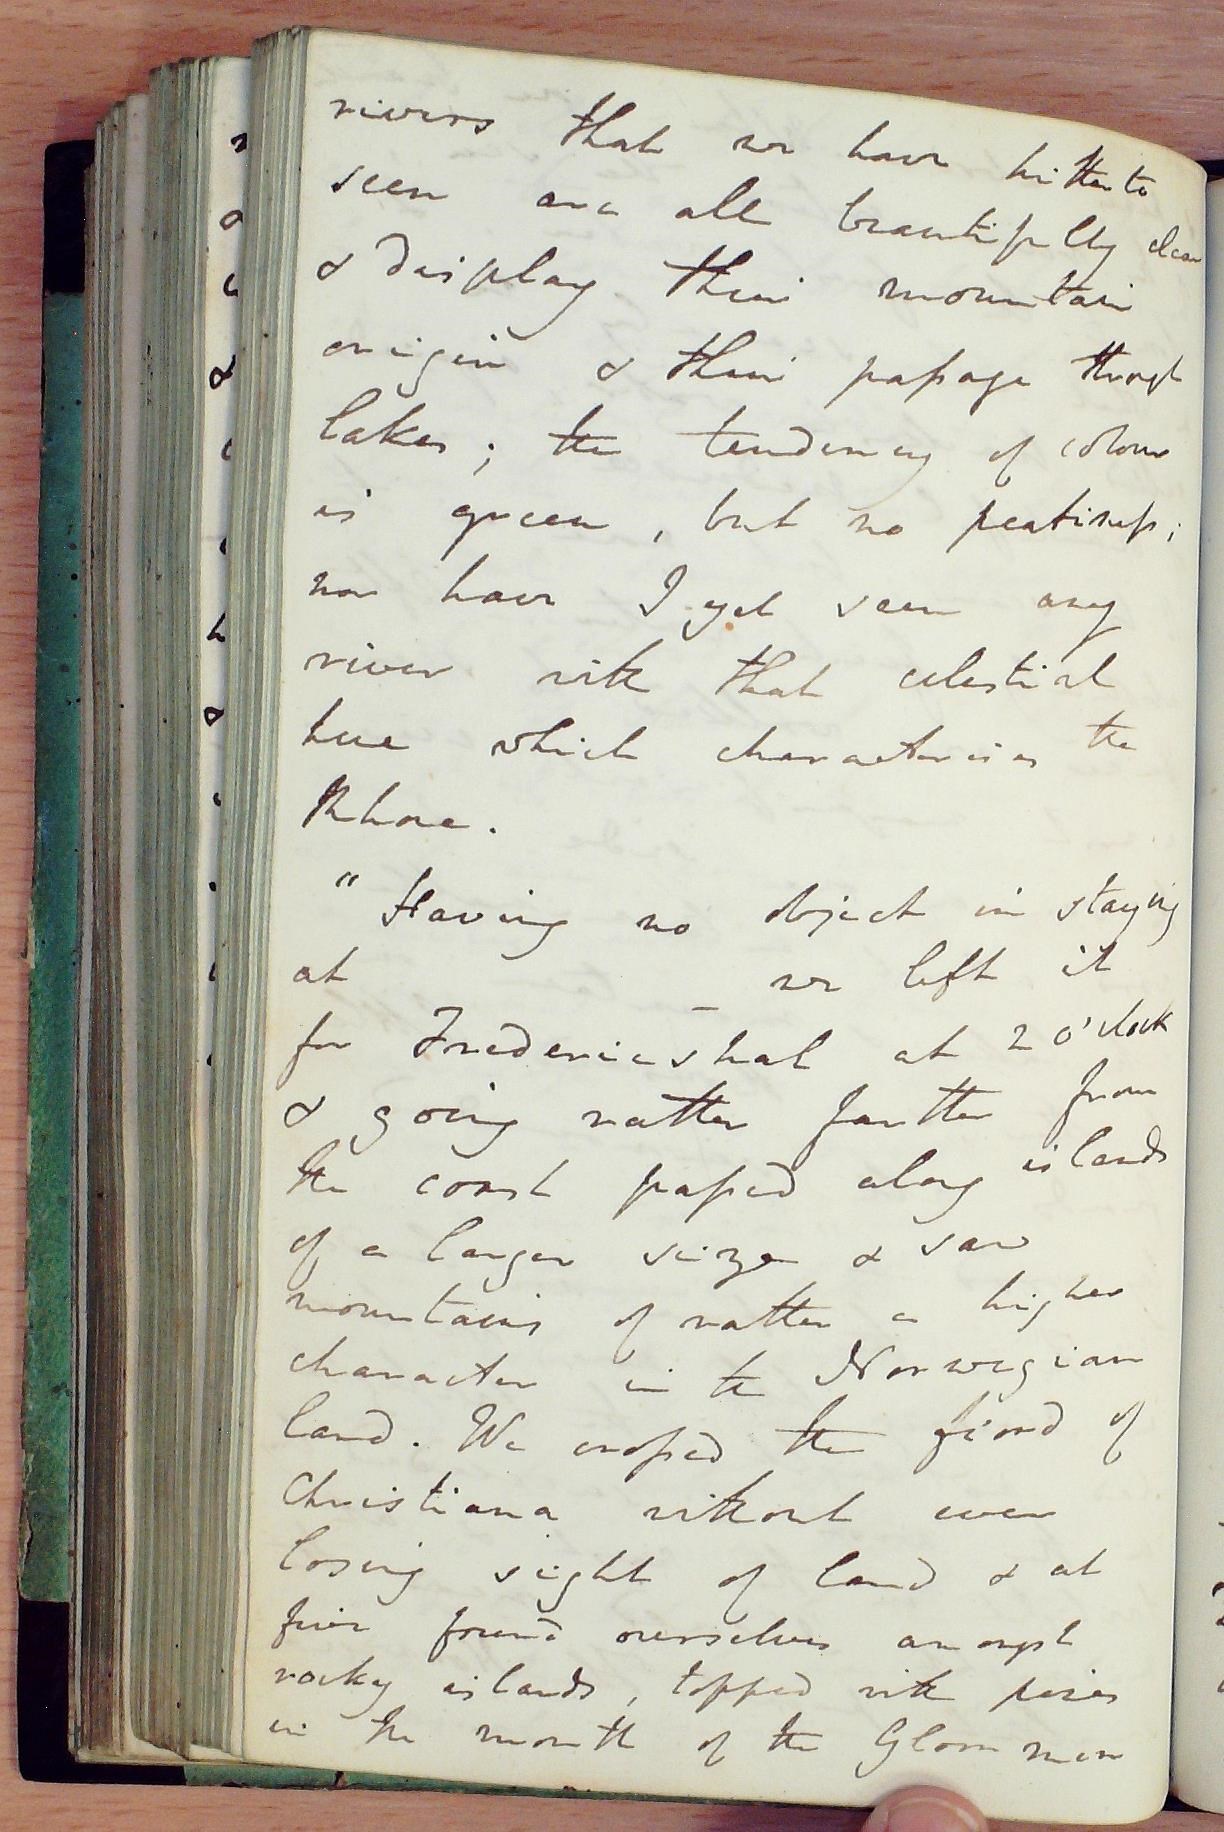 rivers that we have hitherto
seen are all beautifully clear
& display their mountain
origin & their passage through
lakes; the tendency of colour
is green, but no peatiness;
nor have I yet seen any
river with that celestial
hue which characterises the
Rhone.
"Having no object in staying
at — we left it
for Fredericshal at 2 o'clock
& going rather farther from
the coast passed along islands
of a larger size & saw
mountains of rather a higher
character in the Norwegian
land. We crossed the fiord of
Christiana without ever
losing sight of land & at
five found ourselves amongst
rocky islands, topped with pines
in the mouth of the Glommen